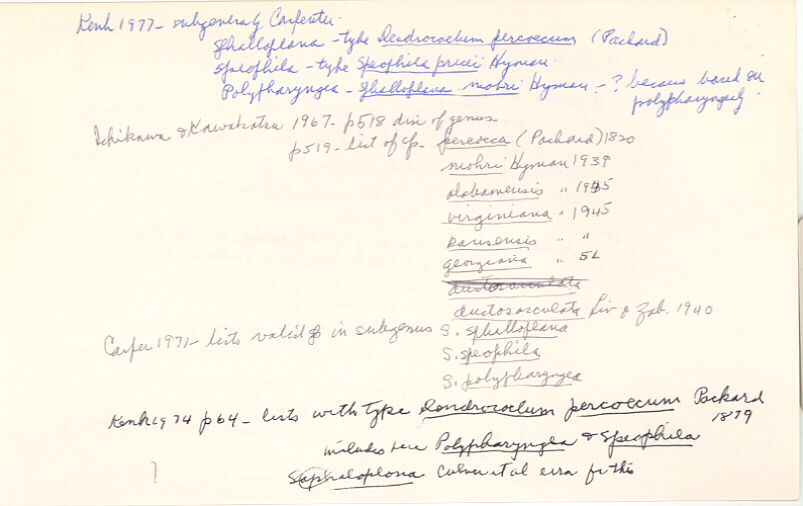 Kenk 1977 - subgenera of Carpenter
Sphalloplana - type Dendrocoelum percoecum (Packard)
Speophila - type Speophila pricei Hyman
Polypharyngea - Sphalloplana mohri Hyman - ? because based on
polypharyngely.
Ichikawa & Kawakatsu 1967 - p518 disc of genus.
p519 - list of sp. percoeca (Packard)
mohri Hyman 1939
alabamensis " 1945
virginiana " 1945
kansensis " "
georgiana " 54
Liv & Zab. 1940
1971 - lists valid in subgenus S. sphalloplana
S. speophila
S. polypharyngea
Kenk 1974 p64 - lists with type Dendrocoelum percoecum Packard
1879
includes here Polypharyngea & Speophila
Culver et al error for this